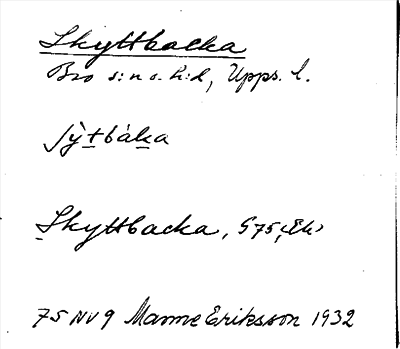 Skyttbacka
Bro s:n o. h:d, Upps. l.
ʃy̆tbàka
Skyttbacka, G75, (Ek)
75 NV 9 Manne Eriksson 1932